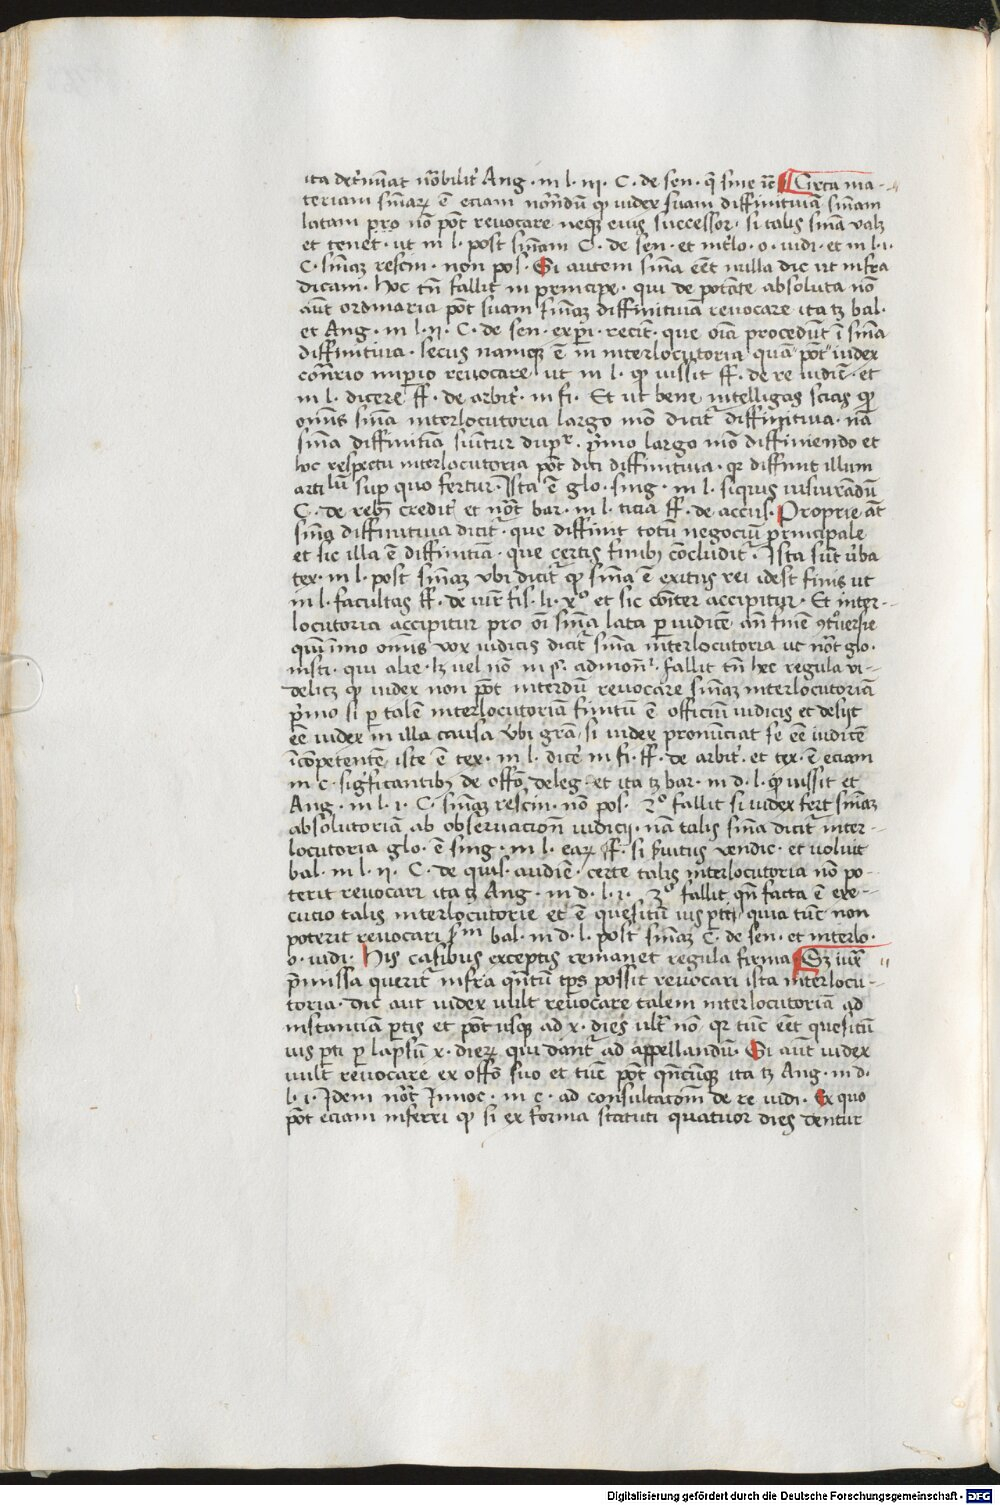 ita det'minat nōbilit' Ang · in l · iii · C · de sen · q̄ sine c̄e Circa ma-
teriam sn̄iaꝝ ē eciam notandū ꝙ iudex suam diffinitiuā sn̄iam
latam pro nō pōt reuocare neqꝫ eius successor · si talis sn̄ia ualꝫ
et tenet · ut in l · post sn̄iam C · de sen · et int'lo · o · iudi · et in l · i ·
C · sn̄iaꝫ rescin · non pos · Si autem sn̄ia eēt nulla dic ut infra
dicam · hoc tn̄ fallit in principe · qui de potāte absoluta nō
aūt ordinaria pōt suam sn̄iaꝫ diffinitiuā reuocare ita tꝫ bal ·
et Ang · in l · ii · C · de sen · ex peri · recit · que oīa procedūt ī sn̄ia
diffinitiua · secus namqꝫ ē in interlocutoria quā pōt iudex
con̄rio imperio reuocare ut in l · ꝙ iussit ff · de re iudic̄ · et
in l · dicere ff · de arbit' · in fi · Et ut bene intelligas scias ꝙ
omīs sn̄ia interlocutoria largo mō dicit' diffinitiua · nā
sn̄ia diffinitīa sumitur dupl'r · p'mo largo mō diffiniendo et
hoc respectu interlocutoria pōt dici diffinitiua · qꝛ diffinit illum
articulū sup quo fertur · Ista ē glo · sing · in l · siquis iusiurādū
C · de rebꝫ credit' et nōt bar · in l · titia ff · de accus · Proprie āt
sn̄ia diffinitiua dicit' · que diffinit totū negociū principale
et sic illa ē diffinitīa · que certis finibꝫ concludit' · Ista sūt ūba
tex · in l · post sn̄iaꝫ ubi dicit' ꝙ sn̄ia ē exitus rei idest finis ut
in l · facultas ff · de iure fis · li · xº et sic cōiter accipitur · Et inter-
locutoria accipitur pro oī sn̄ia lata p iudicē an̄ finē 9t'uersie
quīimo omīs uox iudicis dicit' sn̄ia interlocutoria ut nōt glo ·
insti · qui alie · lꝫ uel nō in p'n · admon' · fallit tn̄ hec regula vi-
delicꝫ ꝙ iudex non pōt interdū reuocare sn̄iaꝫ interlocutoriā
p'mo si p talē interlocutoriā finitū ē officiū iudicis et desijt
ēe iudex in illa causa Vbi gr̄a si iudex pronunciat se ēe iudicē
īcompetentē iste ē tex · in l · dicē in fi · ff · de arbit' · et tex · ē eciam
in c · significantibꝫ de offō deleg · et ita tꝫ bar · in d · l · ꝙ iussit et
Ang · in l · i · C · sn̄iaꝫ rescin · nō pos · 2º fallit si iudex fert sn̄iaꝫ
absolutoriā ab obseruacion̄ iudicij · nā talis sn̄ia dicit' inter-
locutoria glo · ē sing · in l · eaꝝ ff · si s'uitus vendic · et uoluit
bal · in l · ii · C · de quis · audiē · certe talis interlocutoria nō po-
terit reuocari ita tꝫ Ang · in d · l · i · 3º fallit qn̄ facta ē exe-
cucio talis interlocutorie et ē quesitū ius p̄ti quia tūc non
poterit reuocari s'm bal · in d · l · post sn̄iaꝫ C · de sen · et interlo ·
o · iudi · His casibus exceptis remanet regula firma Sꝫ iux̄
p'missa querit' infra qn̄tū tp̄s possit reuocari ista interlocu-
toria · dic aut iudex uult reuocare talem interlocutoriā ad
instantiā p̄tis et pōt usqꝫ ad x · dies ult' nō qꝛ tūc eēt quesitū
ius p̄ti p lapsū x · dieꝝ qui dant' ad appellandū · Si aūt iudex
uult reuocare ex offō suo et tūc pōt qn̄cūqꝫ ita tꝫ Ang · in d ·
l · i · Idem nōt Innoc · in c · ad consultacōm de re iudi · Ex quo
pōt eciam inferri ꝙ si ex forma statuti quatuor dies dentur
Digitalisierung gefördert durch die Deutsche Forschungsgemeinschaft - DFG